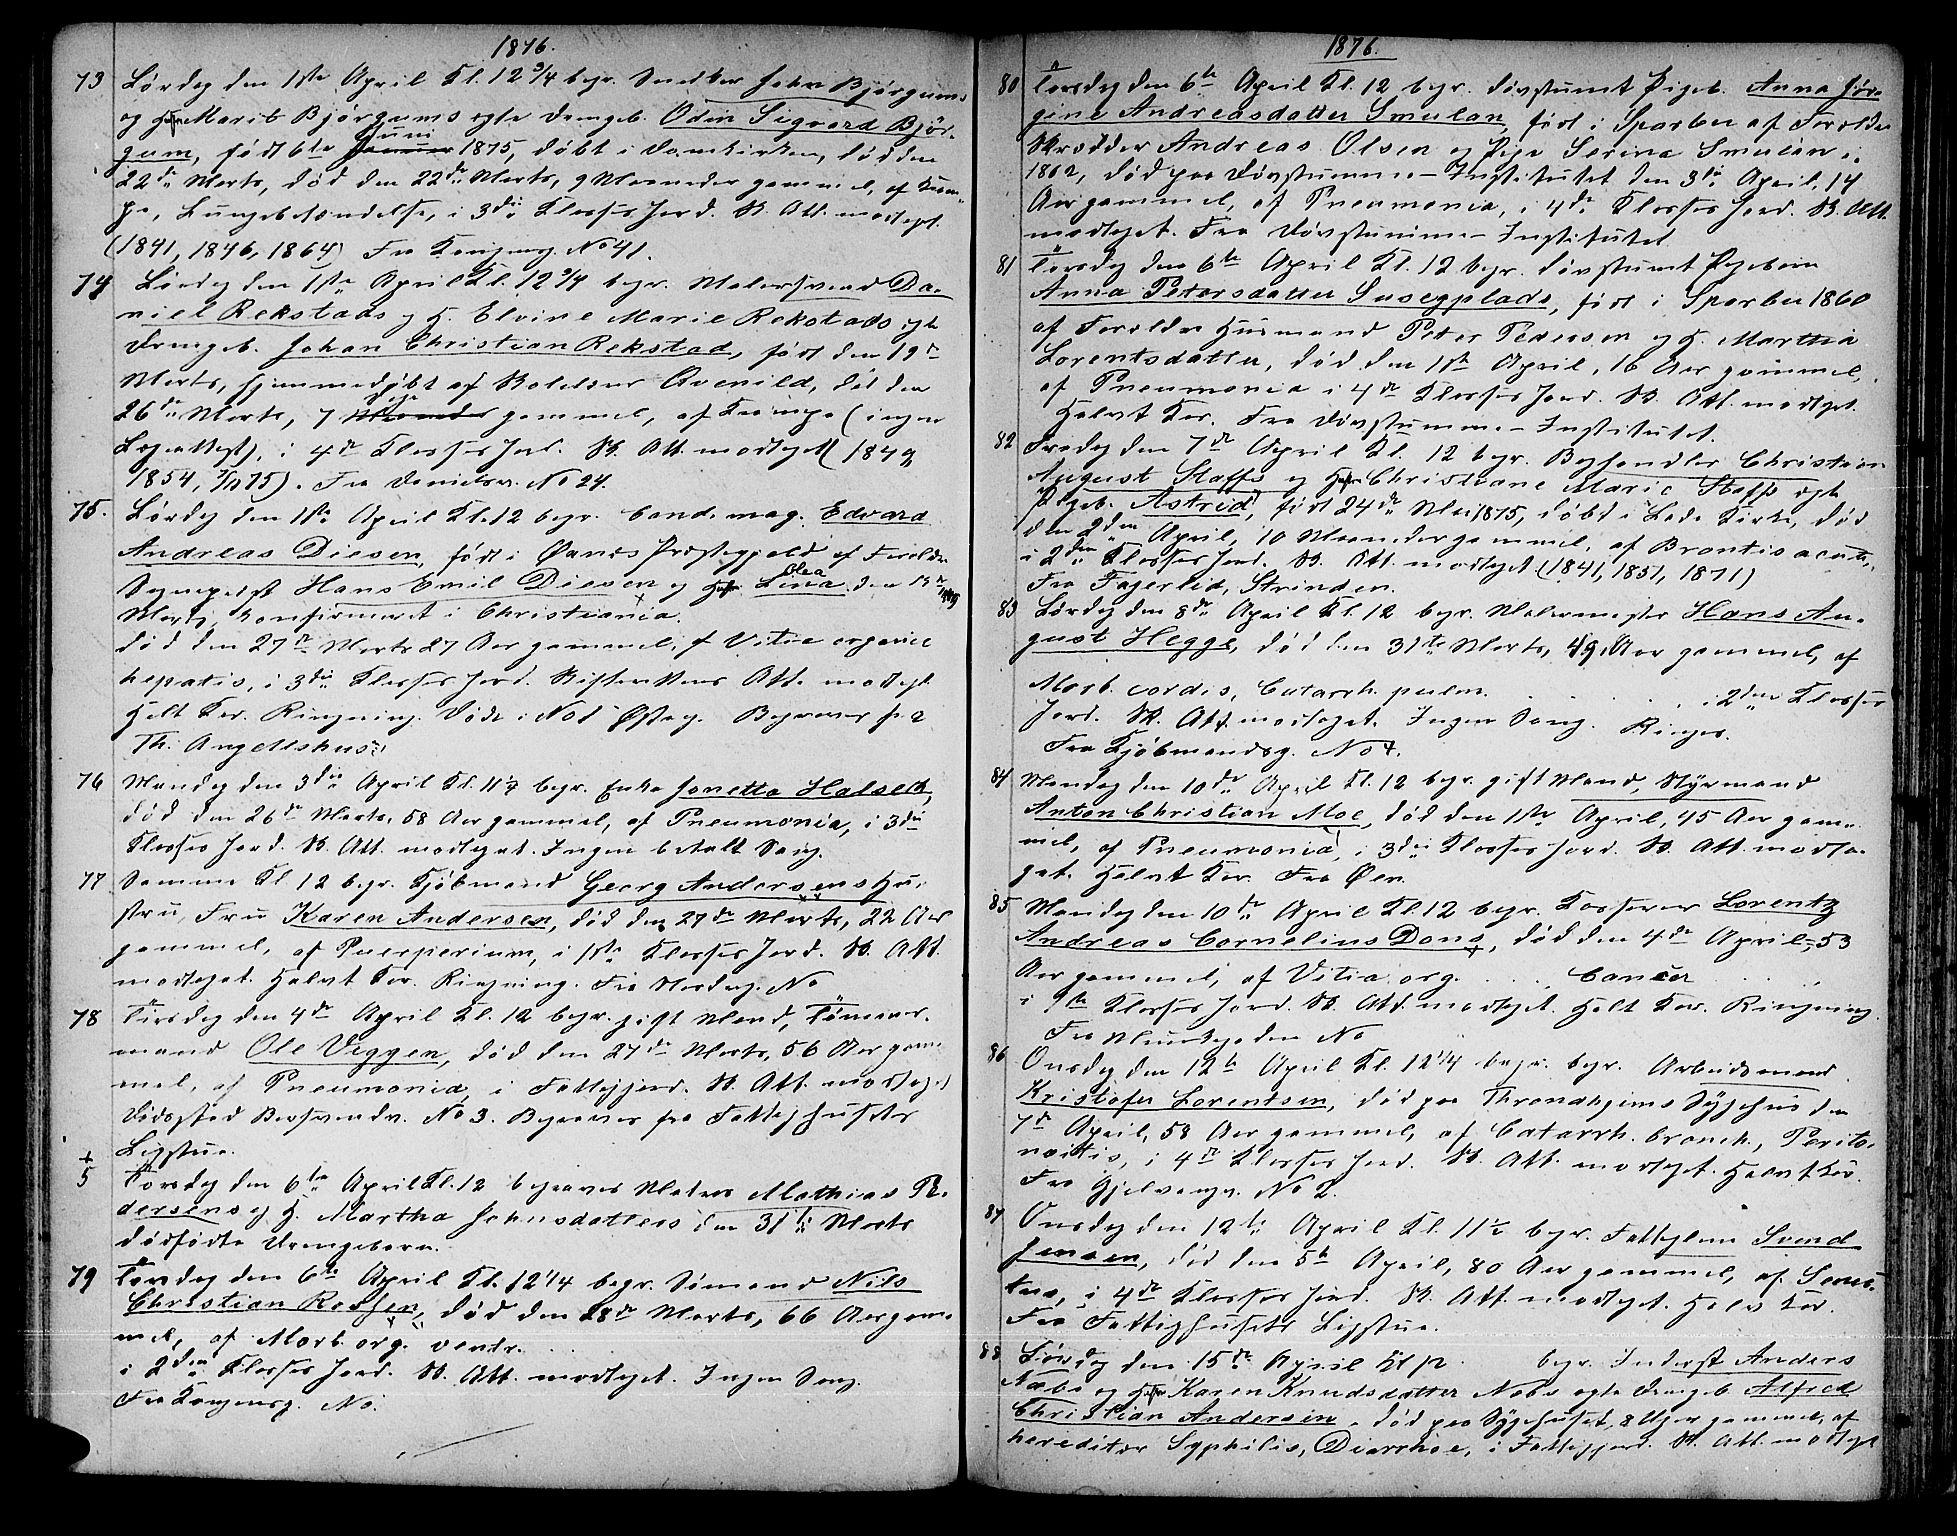 1876.
73 Lørdag den 1ste April Kl. 12 3/4 begr. Snedker John Bjørgums
og H. Marit Bjørgums ægte Drengeb. Odin Sigvard Bjør-
gum, født 6te Juni 1875, døbt i Domkirken, død den
22de Marts, død den 22de Marts, 9 Maaneder gammel, af Kram-
pe, Lungebetændelse, i 3die Klasses Jord. Sk. Att. modtaget.
(1841, 1846, 1864) Fra Kongensg. No 41.
74 Lørdag den 1ste April Kl. 12 3/4 begr. Malersvend Da-
niel Rekstads og H. Elvine Marie Rekstads ægte
Drengeb. Johan Christian Rekstad, født den 19de
Marts, hjemmedøbt af Avenild, død den
26de Marts, 7 Dage gammel, af Krampe (ingen
Lægeattest), i 4de Klasses Jord. Sk. Att. modtaget (1849,
1854, 75). Fra Danielsv. No 24.
75. Lørdag den 1ste April Kl. 12 begr. Cand. mag. Edvard
Andreas Diesen, født i Præstegjeld af Forældre
Hans Emil Diesen og Lina Olea den
Marts, konfirmeret i Christiania.
død den 27de Marts 27 Aar gammel, af Vitia organice
hepatis, i 3die Klasses Jord. Skifterettens Att. modtaget.
Helt Kor. Ringning. Døde i No 1 Østerg. Begraves fra
Th. Angellshuus.
76 Mandag den 3die April Kl. 11 1/2 begr. Enke Jonetta Halseth,
død den 26de Marts, 58 Aar gammel, af Pneumonia, i 3die
Klasses Jord. Sk. Att. modtaget. Ingen betalt Sang.
77 Samme Kl 12 begr. Kjøbmand Georg Andersens Hu-
stru, Fru Karen Andersen, død den 27de Marts, 22 Aar
gammel, af Puerperium, i 1ste Klasses Jord. Sk. Att.
modtaget. Halvt Kor. Ringning. Fra Nordreg. No
78 Tirsdag den 4de April Kl. 12 begr. gift Mand, Tømmer-
mand Ole Viggen, død den 27de Marts, 56 Aar gam-
mel, af Pneumonia, i Fattigjord. Sk. Att. modtaget
Dødssted No 3. Begraves fra Fattighusets
Ligstue.
+
5 Torsdag den 6te April Kl. 12 begraves Mathias Pe-
dersens og H. Martha Johnsdatters den 31te Marts
dødfødte Drengebarn.
79 Torsdag den 6te April Kl. 12 1/4 begr. Sømand Nils
Christian Rossen, død den 28de Marts, 66 Aar gam-
mel, af Morb. org. ventr.
i 2den Klasses Jord. Sk. Att. modtaget. Ingen Sang.
Fra Kongensg. No.
1876.
80 Torsdag den 6te April Kl. 12 begr. døvstumt Pigeb. Anna Jør-
gine Andreasdatter Smulan, født i Sparbu af Forældre
Skrædder Andreas Olsen og Pige Serina Smulan i
1862, død paa Døvstumme-Institutet den 3die April, 14
Aar gammel, af Pneumonia, i 4de Klasses Jord. Sk. Att.
modtaget. Fra Døvstumme-Institutet
81 Torsdag den 6te April Kl. 12 begr. døvstumt Pigebarn
Anna Petersdatter Susegplads, født i Sparbu 1860
af Forældre Husmand Peter Pedersen og H. Marthia
Lorentsdatter, død den 1ste April, 16 Aar gammel,
af Pneumonia i 4de Klasses Jord. Sk. Att. modtaget.
Halvt Kor. Fra Døvstumme-Institutet.
82 Fredag den 7de April Kl. 12 begr. Boghandler Christian
August Staffs og H. Christiane Marie Staffs ægte
Pigeb. Astrid, født 24de Mai 1875, døbt i Lade Kirke, død
den 2den April, 10 Maaneder gammel, af Bronkitis acuta,
i 2den Klasses Jord. Sk. Att. modtaget (1841, 1851, 1871)
Fra Fagerlid, Strinden.
83 Lørdag den 8de April Kl. 12 begr. Malermester Hans Au-
gust Hegge, død den 31te Marts, 49 Aar gammel, af
Morb. cordis, Catarrh. pulm. i 2den Klasses
Jord. Sk. Att. modtaget. Ingen Sang. Ringes.
Fra Kjøbmandsg. No
84 Mandag den 10de April Kl. 12 begr. gift Mand, Styrmand
Anton Christian Moe, død den 1ste April, 45 Aar gam-
mel, af Pneumonia, i 3die Klasses Jord. Sk. Att. modta-
get. Halvt Kor. Fra Øen.
85 Mandag den 10de April Kl. 12 begr. Kasserer Lorentz
Andreas Cornelius Dons, død den 4de April, 53
Aar gammel, af Vitia org. Cancer
i 1ste Klasses Jord. Sk. Att. modtaget. Helt Kor. Ringning.
Fra Munkegaden No
86 Onsdag den 12te April Kl. 12 1/4 begr. begr. Arbeidsmand
Kristofer Lorentsen, død paa Throndhjems Sygehus den
7de April, 58 Aar gammel, af Catarrh. bronch., Perito-
nitis, i 4de Klasses Jord. Sk. Att. modtaget. Halvt Kor.
Fra No 2.
87 Onsdag den 12te April Kl. 11 1/2 begr. Fattiglem Svend
Jensen, død den 5te April, 80 Aar gammel, af Senec-
tus, i 4de Klasses Jord. Sk. Att. modtaget. Halv Kor.
Fra Fattighusets Ligstue.
88 Lørdag den 15de April Kl 12 begr. Inderst Anders
Næbs og H. Karen Knudsdatter Næbs ægte Drengeb. Alfred
Christian Andersen, død paa Sygehuset, 8 Uger gammel, af
hereditær Syphilis, Diarrhoe, i Fattigjord. Sk. Att. modtaget